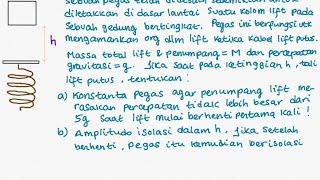 sebuah pegas telah didesain sedemikian untuk
diletakkan di dasar lantai suatu kolom lift pada
sebuah gedung bertingkat. Pegas ini berfungsi utk
mengamankan org dlm lift ketika kabel lift puts.
Massa total lift & penumpang = M dan percepatan
gravitasi = g. Jika saat pada ketinggian h, tali
lift putus, tentukan :
a) Konstanta Pegas agar penumpang lift me-
rasakan percepatan tidak lebih besar dari
5g saat lift mulai berhenti pertama kali !
b) Amplitudo isolasi dalam h, jika setelah
berhenti, pegas itu kemudian berisolasi
h